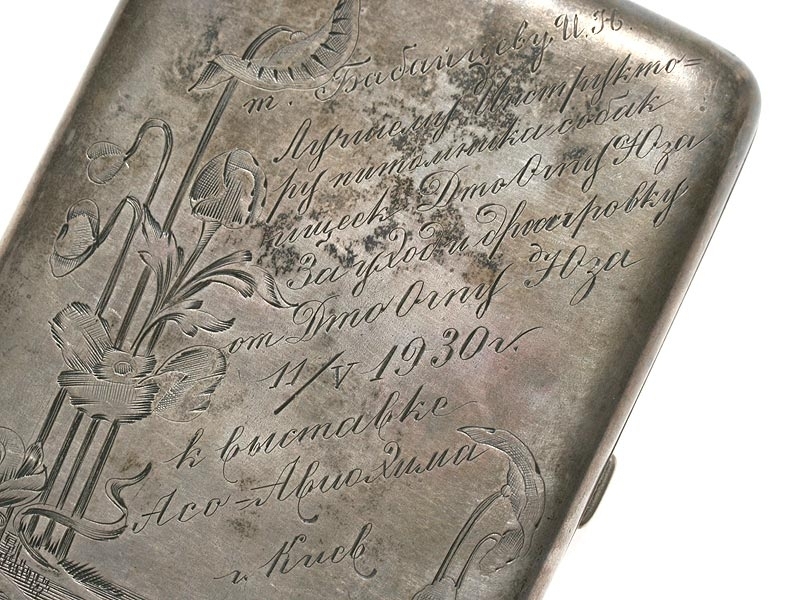 т. Бабайцеву И.Н.
Лучшему Инструкто=
ру питомника собак
ищеек ДтоОгпу Юза
За уход и дрссировку
от ДтоОгпу Юза
11/V 1930 г.
к выставке
Асо-Авиохима
г. Киев